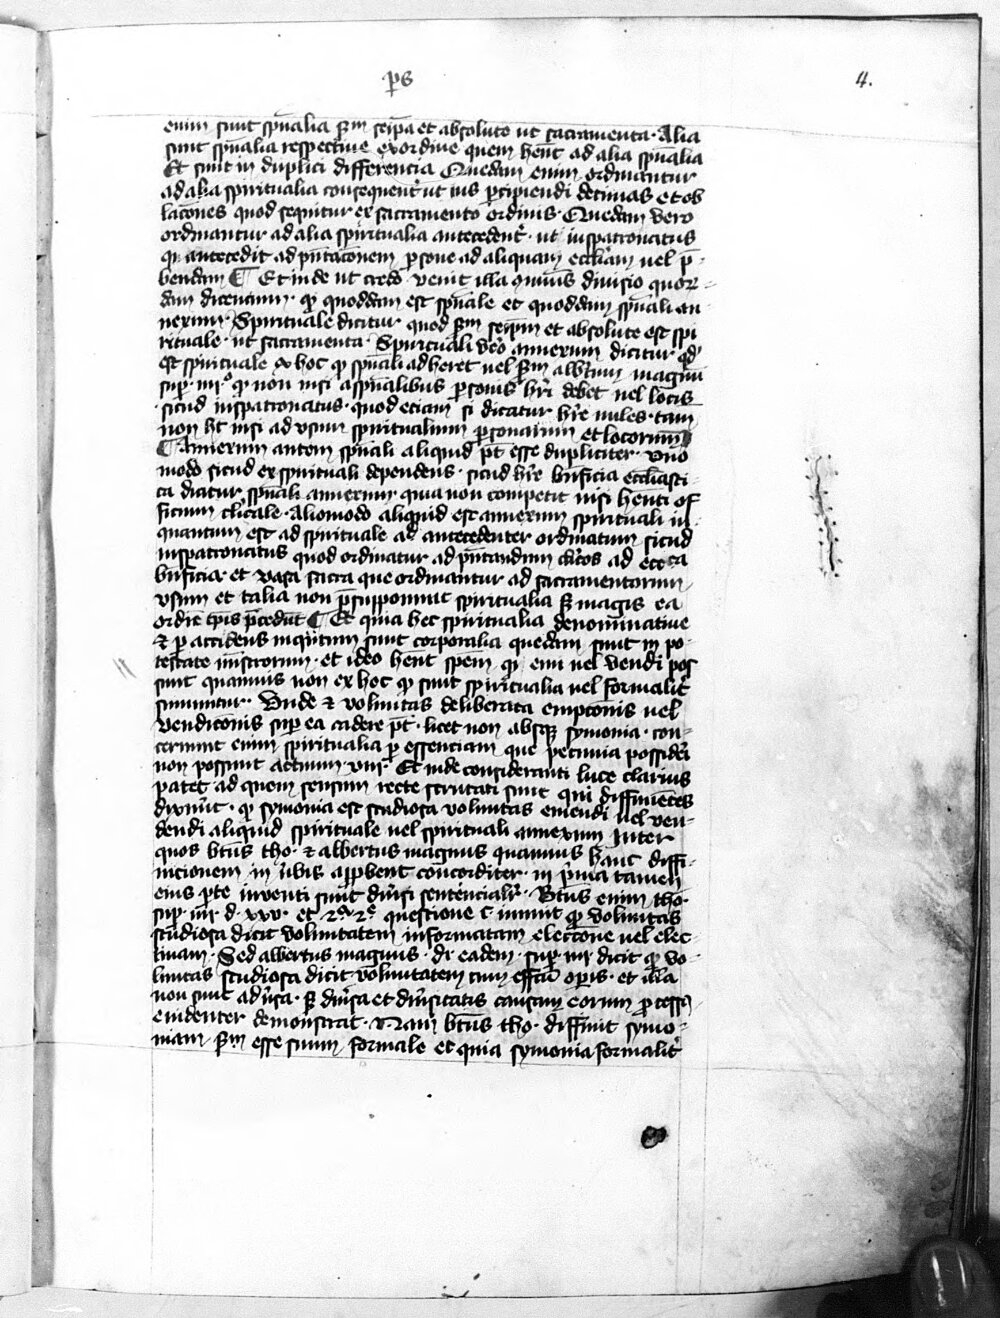 ps
4.
enim sunt spūalia s̄m seip̄a et absolute ut sacramenta · Alia
sunt spūalia respective ex ordine quem hēnt ad alia spūalia
Et sunt in duplici differencia Quedam enim ordinantur
ad alia spiritualia consequent̄ ut ius p̄cipiendi decimas et ob
lacōnes quod sequitur ex sacramento ordinis · Quedam vero
ordinantur ad alia spiritualia antecedent̄ · ut iuspatronatus
q̄ antecedit ad p̄ntacōnem p̄sone ad aliquam eccl̄iam vel p̄
bendam ¶ Et inde ut credo venit illa divisio quor
dam dicencium · q̄ quoddam est sp̄uale et quoddam sp̄uali an
nexum · Spirituale dicitur quod s̄m seip̄m et absolute est spi
rituale · ut sacramenta · Spirituali v̄o annexum dicitur q̄d
est spirituale ex hoc q̄ sp̄uali adheret vel s̄m alb̄tum magnū
sup̄ · iiij° q̄ non nisi a sp̄ualibus p̄sonis h̄ri debet vel locis
sicud iuspatronatus · quod eciam si dicatur h̄re miles · tam̄
non h̄t nisi ad usum spiritualium p̄sonarum et locorum
¶ Annexum autem sp̄uali aliquid p̄t esse dupliciter · uno
modo sicud ex spirituali dependens · sicud h̄re b̄nficia eccl̄iasti
ca dicitur sp̄uali annexum quia non competit nisi hēnti of
ficium cl̄icale · Aliomodo aliquid est annexum spirituali in
quantum est ad spirituale antecedenter ordinatum sicud
iuspatronatus quod ordinatur ad p̄ntandum cl̄icos ad
b̄nficia · et vasa sacra que ordinantur ad sacramentorum
usum et talia non p̄supponunt spiritualia s̄ magis ea
ordīe tp̄is p̄cedūt ¶ Et quia hec spiritualia denominative
et p̄ accidens inq̄ntum sunt corporalia quedam sunt in po
testate m̄istrorum · et ideo hēnt q̄ emi vel vendi pos
sint quamvis non ex hoc q̄ sunt spiritualia vel formalit̄
sumuntur · Unde et voluntas deliberata empcōnis vel
vendicōnis sup̄ ea cadere p̄t · licet non absq̄ symonia · con
cernunt enim spiritualia p̄ essenciam que pecunia possideri
non possunt actuum · viij · Et inde consideranti luce clarius
patet ad quem sensum recte scrutati sunt qui diffinientes
dixerūt · q̄ symonia est studiosa voluntas emendi vel ven
dendi aliquid spirituale vel spirituali annexum Inter
quos b̄tus tho · et albertus magnus quamvis hanc diffi
nicionem in v̄bis app̄bent concorditer · in p̄ma tamen
eius p̄te inventi sunt div̄si sentencialit̄ · B̄tus enim tho ·
sup̄ · iiij · d · xxv · et 2ᵃ 2ᵉ questione C innuit q̄ voluntas
studiosa dicit voluntatem informatam eleccōne vel elec
tivam · Sed albertus magnus · di eadem · sup̄ iiij dicit q̄ vo
luntas studiosa dicit voluntatem cum effc̄u op̄is · et illa
non sunt adv̄sa · s̄ div̄sa et div̄sitatis causam eorum p̄cessus
evidenter demonstrat · Nam b̄tus tho · diffinit symo
niam s̄m esse suum formale et quia symonia formalit̄